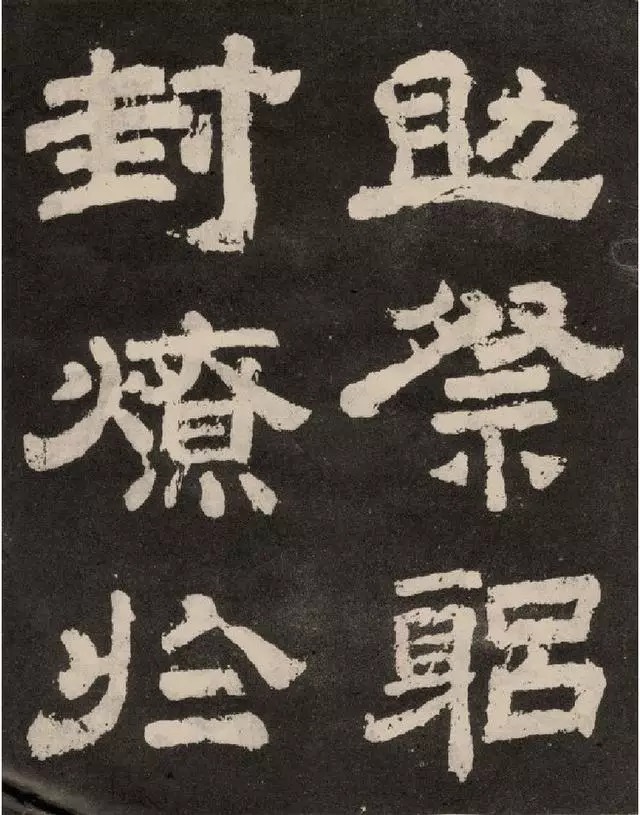 助祭躳
封燎於